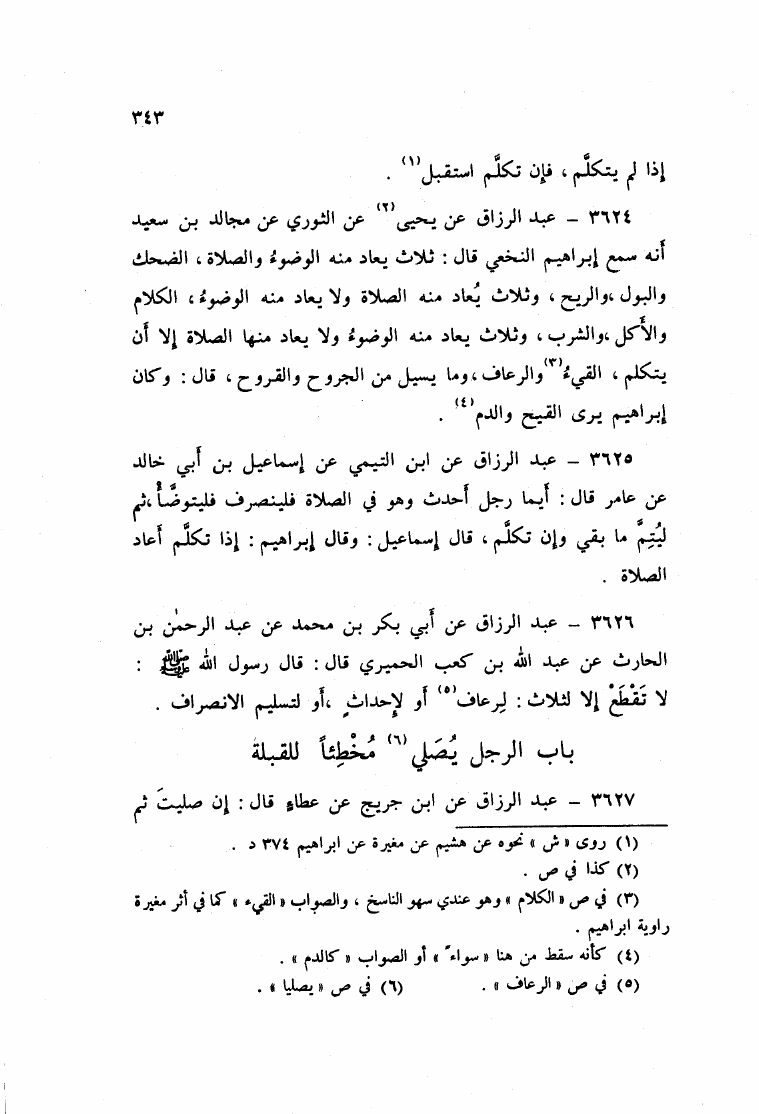 ٣٤٣
إذا لم يتكلَّم ، فإن تكلَّم استقبل(١) .
٣٦٢٤ – عبد الرزاق عن يحيى(٢) عن الثوري عن مجالد بن سعيد
أنه سمع إبراهيم النخعي قال : ثلاث يعاد منه الوضوءُ والصلاة ، الضحك
والبول ،والريح ، وثلاث يُعاد منه الصلاة ولا يعاد منه الوضوء ، الكلام
والأكل ،والشرب ، وثلاث يعاد منه الوضوءُ ولا يعاد منها الصلاة إلا أن
يتكلم ، القيءُ(٣) والرعاف ،وما يسيل من الجروح والقروح ، قال : وكان
إبراهيم يرى القيح والدم(٤) .
٣٦٢٥ – عبد الرزاق عن ابن التيمي عن إسماعيل بن أبي خالد
عن عامر قال : أيما رجل أحدث وهو في الصلاة فلينصرف فليتوضَّأْ ،ثم
ليُتِمَّ ما بقي وإن تكلَّم ، قال إسماعيل : وقال إبراهيم : إذا تكلَّم أعاد
الصلاة .
٣٦٢٦ – عبد الرزاق عن أبي بكر بن محمد عن عبد الرحمٰن بن
الحارث عن عبد الله بن كعب الحميري قال : قال رسول الله ﷺ :
لا تَقْطَعْ إلا لثلاث : لِرعاف(٥) أو لإحداثٍ ،أو لتسليم الانصراف .
باب الرجل يُصَلي(٦) مُخْطِئاً للقبلة
٣٦٢٧ – عبد الرزاق عن ابن جريج عن عطاءٍ قال : إن صليتَ ثم
(١) روى « ش » نحوه عن هشيم عن مغيرة عن ابراهيم ٣٧٤ د .
(٢) كذا في ص .
(٣) في ص « الكلام » وهو عندي سهو الناسخ ، والصواب « القيء » كما في أثر مغيرة
راوية ابراهيم .
(٤) كأنه سقط من هنا « سواءً » أو الصواب « كالدم » .
(٥) في ص « الرعاف » . (٦) في ص « يصليا » .